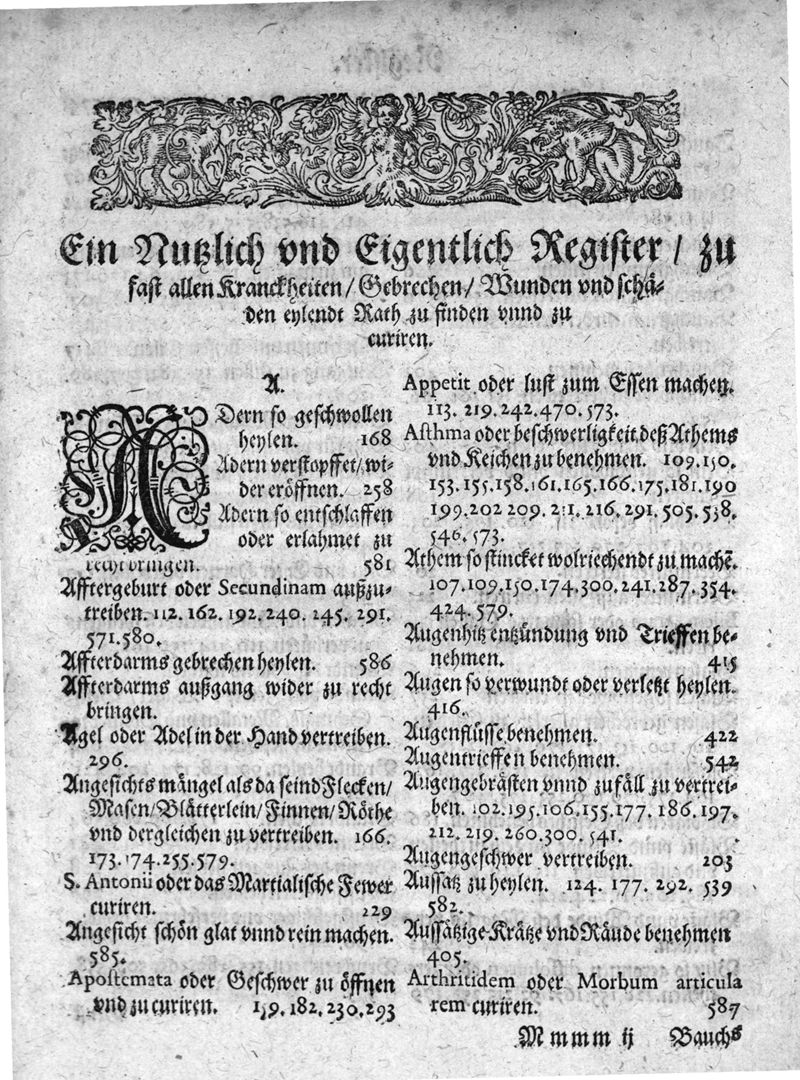 Ein Nutzlich vnd Eigentlich Register / zu
fast allen Kranckheiten/ Gebrechen/ Wunden vnd schä-
den eylendt Rath zu finden vnnd zu
curiren.
A.
ADern so geschwollen
heylen. 168
Adern verstopffet/ wi-
der eröffnen. 258
Adern so entschlaffen
oder erlahmet zu
recht bringen. 581
Afftergeburt oder Secundinam außzu-
treiben. 112. 162. 192. 240. 245. 291.
571. 580.
Affterdarms gebrechen heylen. 586
Affterdarms außgang wider zu recht
bringen.
Agel oder Adel in der Hand vertreiben.
296.
Angesichts mängel als da seind Flecken/
Masen/ Blätterlein/ Finnen/ Röthe
vnd dergleichen zu vertreiben. 166.
173. 174. 255. 579.
S. Antonii oder das Martialische Fewer
curiren. 229
Angesicht schön glat vnnd rein machen.
585.
Apostemata oder Geschwer zu öffnen
vnd zu curiren. 159. 182. 230. 293
Appetit oder lust zum Essen machen.
113. 219. 242. 470. 573.
Asthma oder beschwerligkeit deß Athems
vnd Keichen zu benehmen. 109. 150.
153. 155. 158. 161. 165. 166. 175. 181. 190
199. 202 209. 211. 216. 291. 505. 538.
546. 573.
Athem so stincket wolriechendt zu machē.
107. 109. 150. 174. 300. 241. 287. 354.
424. 579.
Augenhitz entzündung vnd Trieffen be-
nehmen. 415
Augen so verwundt oder verletzt heylen.
416.
Augenflüsse benehmen. 422
Augentrieffen benehmen. 542
Augengebrästen vnnd zufäll zu vertrei-
ben. 102. 195. 106. 155. 177. 186. 197.
212. 219. 260. 300. 541.
Augengeschwer vertreiben. 203
Aussatz zu heylen. 124. 177. 292. 539
582.
Aussätzige Krätze vnd Räude benehmen
405.
Arthritidem oder Morbum articula
rem curiren. 587
Mmmm ij Bauchs